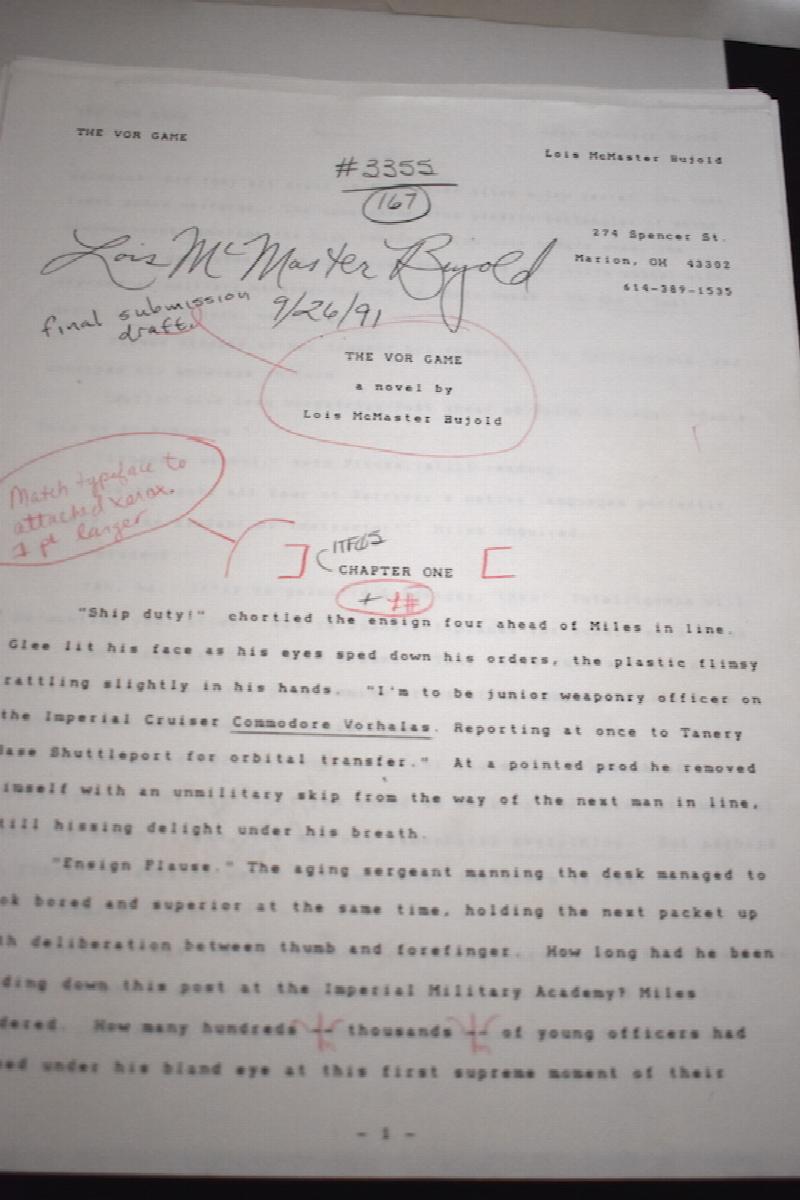 THE VOR GAME
Lois McMaster Bujold
#3355
167
274 Spencer St.
Marion, OH 43302
614-389-1535
Lois McMaster Bujold
final submission
draft.
9/26/91
THE VOR GAME
a novel by
Lois McMaster Bujold
Match typeface to
attached xerox.
1 pt larger
CHAPTER ONE
"Ship duty!" chortled the ensign four ahead of Miles in line.
Glee lit his face as his eyes sped down his orders, the plastic flimsy
rattling slightly in his hands. "I'm to be junior weaponry officer on
the Imperial Cruiser Commodore Vorhalas. Reporting at once to Tanery
Base Shuttleport for orbital transfer." At a pointed prod he removed
imself with an unmilitary skip from the way of the next man in line,
till hissing delight under his breath.
"Ensign Plause." The aging sergeant manning the desk managed to
ok bored and superior at the same time, holding the next packet up
th deliberation between thumb and forefinger. How long had he been
ding down this post at the Imperial Military Academy? Miles
dered. How many hundreds -- thousands -- of young officers had
ed under his bland eye at this first supreme moment of their
- 1 -